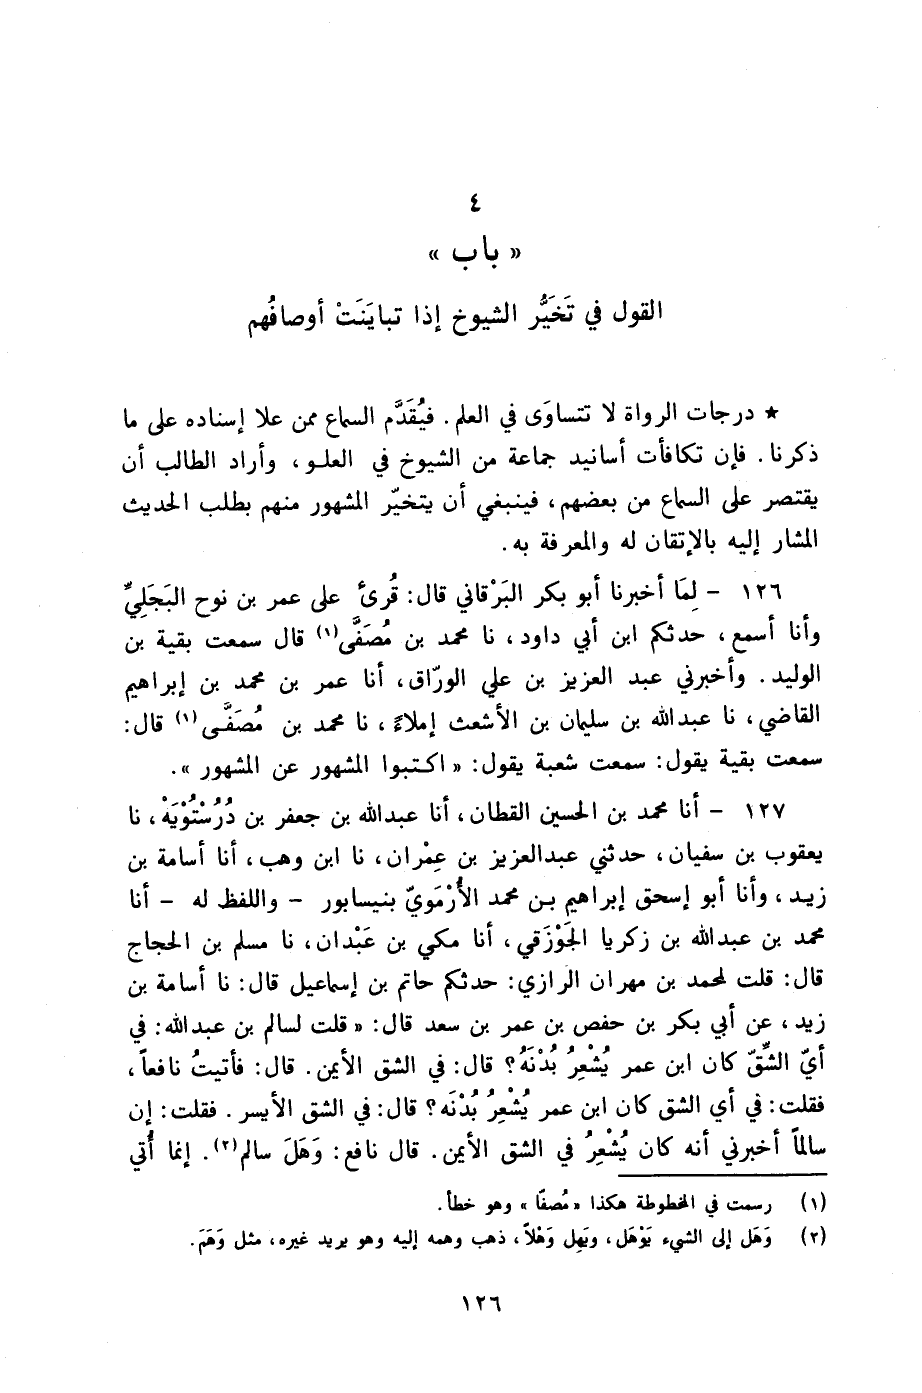 ٤
« باب »
القول في تَخَيُّر الشيوخ إذا تبايَنَتْ أوصافُهم
★ درجات الرواة لا تتساوَى في العلم . فيُقَدَّم السماع ممن علا إسناده على ما
ذكرنا . فإن تكافأت أسانيد جماعة من الشيوخ في العلـو ، وأراد الطالب أن
يقتصر على السماع من بعضهم ، فينبغي أن يتخيّر المشهور منهم بطلب الحديث
المشار إليه بالإتقان له والمعرفة به .
١٢٦ – لِمَا أخبرنا أبو بكر البَرْقاني قال : قُرئَ على عمر بن نوح البَجَلِيِّ
وأنا أسمع ، حدثكم ابن أبي داود ، نا محمد بن مُصَفَّى(١) قال سمعت بقية بن
الوليد . وأخبرني عبد العزيز بن علي الورّاق ، أنا عمر بن محمد بن إبراهيم
القاضي ، نا عبدالله بن سليمان بن الأشعث إملاءً ، نا محمد بن مُصَفَّـى(١) قال :
سمعت بقية يقول : سمعت شعبة يقول : « اكـتبوا المشهور عن المشهور » .
١٢٧ – أنا محمد بن الحسين القطان ، أنا عبدالله بن جعفر بن دُرُسْتُوَيْهْ ، نا
يعقوب بن سفيان ، حدثني عبدالعزيز بن عِمْران ، نا ابن وهب ، أنا أسامة بن
زيـد ، وأنا أبو إسحق إبراهيم بـن محمد الأُرْمَوِيّ بنيسابور – واللفظ له – أنا
محمد بن عبدالله بن زكريا الجَوْزَقي ، أنا مكي بن عَبْدان ، نا مسلم بن الحجاج
قال : قلت لمحمد بن مهران الرازي : حدثكم حاتم بن إسماعيل قال : نا أسامة بن
زيد ، عن أبي بكر بن حفص بن عمر بن سعد قال : « قلت لسالم بن عبدالله : في
أيّ الشِّقّ كان ابن عمر يُشْعِرُ بُدْنَهُ ؟ قال : في الشق الأيمن . قال : فأتيتُ نافعاً ،
فقلت : في أي الشق كان ابن عمر يُشْعِرُ بُدْنَه ؟ قال : في الشق الأيسر . فقلت : إن
سالماً أخبرني أنه كان يُشْعِرُ في الشق الأيمن . قال نافع : وَهَلَ سالم(٢) . إنما أُتي
(١) رسمت في المخطوطة هكذا « مُصفّا » وهو خطأ .
(٢) وَهَل إلى الشيء يَوْهَل ، ويَهِل وَهْلاً ، ذهب وهمه إليه وهو يريد غيره ، مثل وَهَمَ .
١٢٦